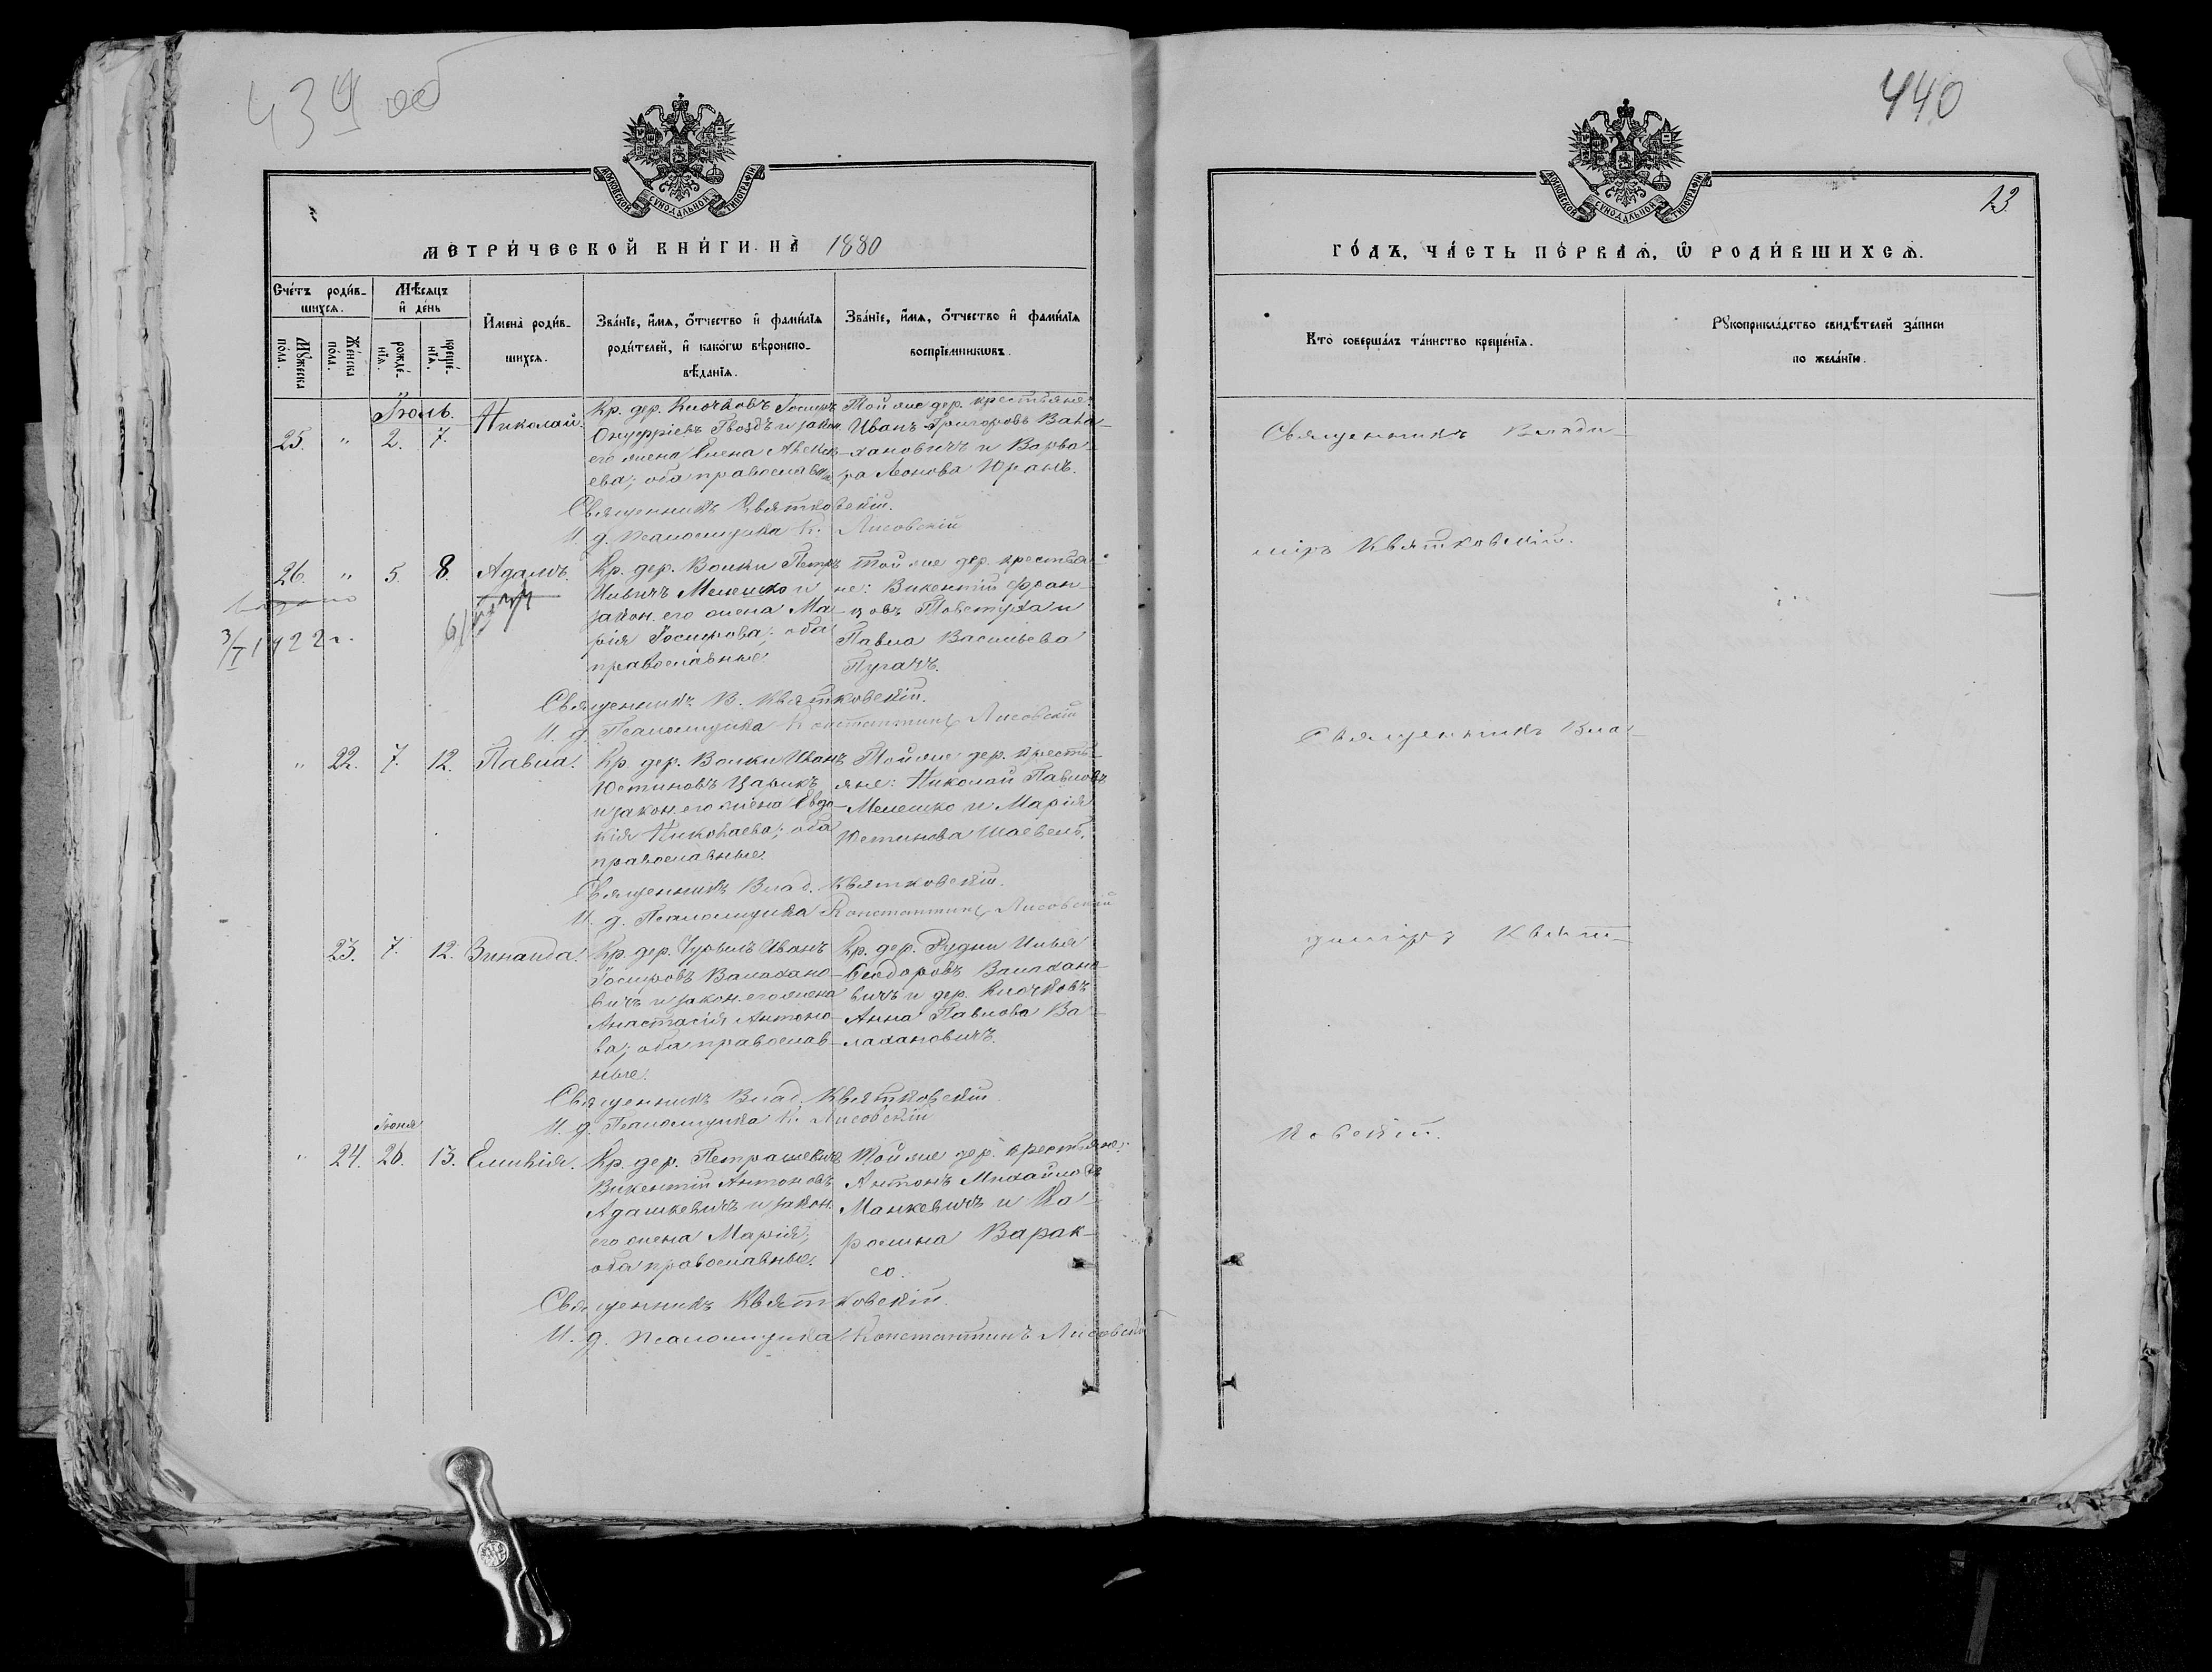 439 об
МОСКОВСКОЙ СУНОДАЛЬНОЙ ТИПОГРАФІИ
МЕТРИ́ЧЕСКОЙ КНИ́ГИ НА 1880
Сче́тъ роди́в-
шихсѧ.
Мѣ́сѧцъ
и҆ де́нь
Мꙋ́жеска
по́ла.
Же́нска
по́ла.
рожде́-
нїѧ.
креще́-
нїѧ.
И҆мена̀ роди́в-
шихсѧ.
Зва́нїе, и҆́мѧ, ѻ҆́тчество и҆ фами́лїѧ
роди́телей, и҆ како́гѡ вѣроиспо-
вѣ́данїѧ.
Зва́нїе, и҆́мѧ, ѻ҆́тчество и҆ фами́лїѧ
воспрїе́мникѡвъ.
Іюль.
25. " 2. 7. Николай.
Кр. дер. Клочковъ Госифъ
Онуфріевъ Гвоздъ и закон
его жена Елена Алексѣ-
ева; оба православн.
Той же дер. крестьяне:
Иванъ Григоровъ Вала-
хановичъ и Варва-
ра Леонова Юранъ.
Священникъ Квятковскій.
И. д. псаломщика К. Лисовскій
26. " 5. 8. Адамъ.
3/I 1922 г.
Кр. дер. Волки Петръ
Ильичъ Мелешко и
закон. его жена Ма-
рія Госифова; оба
православные.
Той же дер. крестья-
не: Викентій Фран-
цовъ Товстуха и
Павла Васильева
Пугачъ.
Священникъ В. Квятковскій.
И. д. Псаломщика Константинъ Лисовскій
" 22. 7. 12. Павла.
Кр. дер. Волки Иванъ
Юстиновъ Царикъ
и закон. его жена Евдо-
кія Николаева; оба
православные.
Той же дер. кресть-
яне: Николай Павловъ
Мелешко и Марія
Юстинова Шаевелъ.
Священникъ Влад. Квятковскій.
И. д. Псаломщика Константинъ Лисовскій
23. 7. 12. Зинаида.
Кр. дер. Чурилъ Иванъ
Госифовъ Валахано-
вичъ и закон. его жена
Анастасія Антоно-
ва; оба православ-
ные.
Кр. дер. Рудни Илья
Ѳеодоровъ Валахано-
вичъ и дер. Клочковъ
Анна Павлова Ва-
лахановичъ.
Священникъ Влад. Квятковскій.
И. д. Псаломщика К. Лисовскій
Іюня
" 24. 26. 13. Емилія.
Кр. дер. Петрашевичъ
Викентій Антоновъ
Адашкевичъ и закон.
его жена Марія;
оба православные.
Той же дер. крестьяне:
Антонъ Михайловъ
Манкевичъ и Ка-
ролина Варак-
со.
Священникъ Квятковскій.
И. д. псаломщика Константинъ Лисовскій
440
МОСКОВСКОЙ СУНОДАЛЬНОЙ ТИПОГРАФІИ
13
ГО́ДЪ, ЧА́СТЬ ПЕ́РВАѦ, Ѽ РОДИ́ВШИХСѦ.
Кто̀ соверша́лъ та́инство креще́нїѧ.
Рꙋкоприкла́дство свидѣ́телей за́писи
по жела́нїю.
Священникъ Влади-
міръ Квятковскій.
Священникъ Вла-
диміръ Квят-
ковскій.